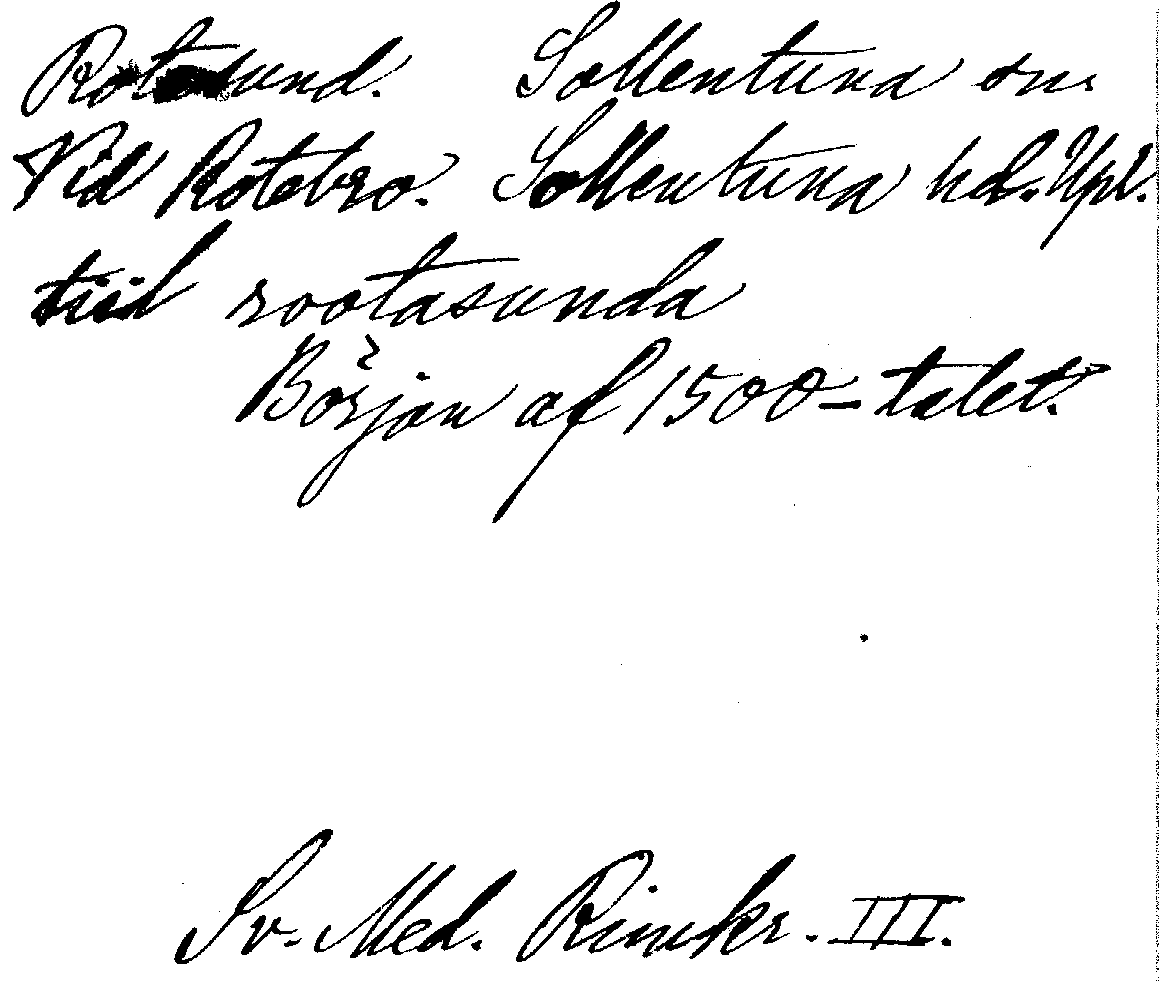 Rotesund. Sollentuna sn.
Vid Rotebro. Sollentuna hd. Upl.
tiid rootasunda
Början af 1500-talet.
Sv. Med. Rimkr. III.